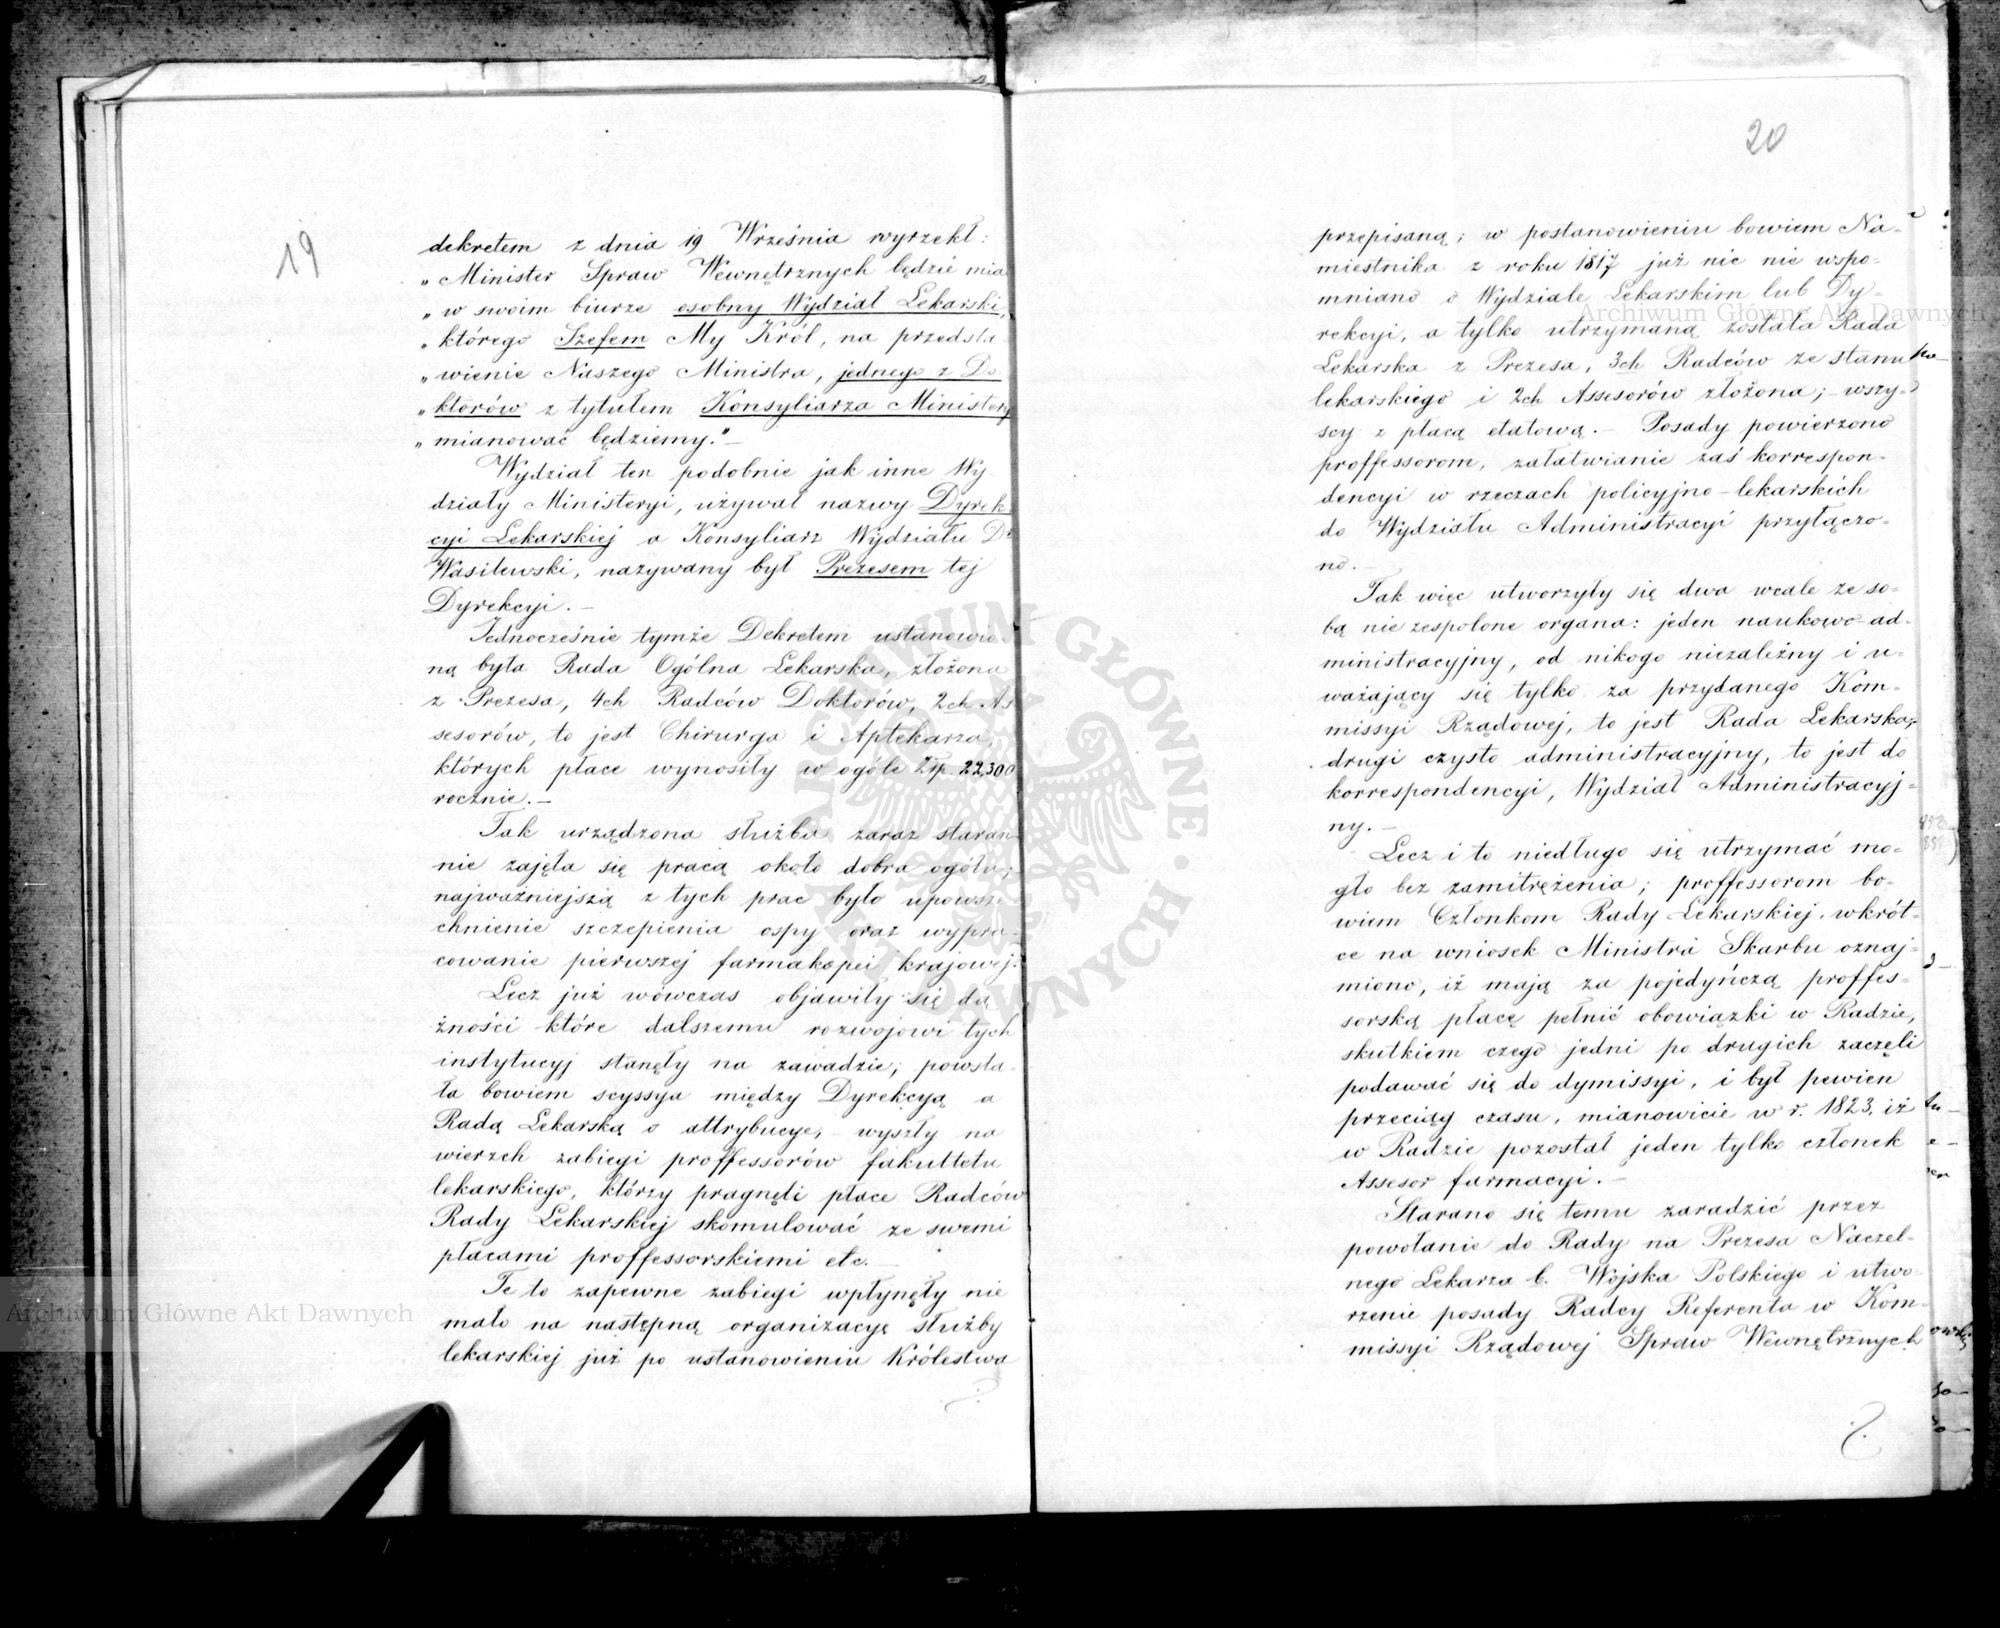 19
dekretem z dnia 19 Września wyrzekł:
„Minister Spraw Wewnętrznych będzie mia
„w swoim biurze osobny Wydział Lekarski,
„którego Szefem My Król, na przedsta-
„wienie Naszego Ministra, jednego z Do-
„ktorów z tytułem Konsyliarza Ministery
„mianować będziemy." —
Wydział ten podobnie jak inne Wy-
działy Ministeryi, używał nazwy Dyrek-
cyi Lekarskiej a Konsyliarz Wydziału Dr
Wasilewski, nazywany był Prezesem tej
Dyrekcyi. —
Jednocześnie tymże Dekretem ustanowio-
ną była Rada Ogólna Lekarska, złożona
z Prezesa, 4ch Radców Doktorów, 2ch As
sesorów, to jest Chirurga i Aptekarza,
których płace wynosiły w ogóle Złp. 22,300
rocznie. —
Tak urządzona służba zaraz staran-
nie zajęła się pracą około dobra ogółu;
najważniejszą z tych prac było upowsze-
chnienie szczepienia ospy oraz wypra-
cowanie pierwszej farmakopei krajowej.
Lecz już wówczas objawiły się dą
żności które dalszemu rozwojowi tych
instytucyj stanęły na zawadzie; powsta-
ła bowiem scyssya między Dyrekcyą a
Radą Lekarską o attrybucye, wyszły na
wierzch zabiegi proffessorów fakultetu
lekarskiego, którzy pragnęli płace Radców
Rady Lekarskiej skomulować ze swemi
płacami proffessorskiemi etc. —
Te to zapewne zabiegi wpłynęły nie
mało na następną organizacyę służby
lekarskiej już po ustanowieniu Królestwa
20
przepisaną; w postanowieniu bowiem Na-
miestnika z roku 1817 już nic nie wspo-
mniano o Wydziale Lekarskim lub Dy-
rekcyi, a tylko utrzymaną została Rada
Lekarska z Prezesa, 3ch Radców ze stanu
lekarskiego i 2ch Assesorów złożona; wszy-
scy z płacą etatową. — Posady powierzono
proffessorom, załatwianie zaś korrespon-
dencyi w rzeczach policyjno-lekarskich
do Wydziału Administracyi przyłączo-
no. —
Tak więc utworzyły się dwa wcale ze so-
bą nie zespolone organa: jeden naukowo-ad-
ministracyjny, od nikogo niezależny i u-
ważający się tylko za przydanego Kom-
missyi Rządowej, to jest Rada Lekarska,
drugi czysto administracyjny, to jest do
korrespondencyi, Wydział Administracyj-
ny. —
Lecz i to niedługo się utrzymać mo-
gło bez zamitrężenia; proffessorom bo-
wiem Członkom Rady Lekarskiej, wkrót-
ce na wniosek Ministra Skarbu oznaj-
miono, iż mają za pojedyńczą proffes-
sorską płacę pełnić obowiązki w Radzie,
skutkiem czego jedni po drugich zaczęli
podawać się do dymissyi, i był pewien
przeciąg czasu, mianowicie w r. 1823, iż
w Radzie pozostał jeden tylko członek
Assesor farmacyi. —
Starano się temu zaradzić przez
powołanie do Rady na Prezesa Naczel-
nego Lekarza b. Wojska Polskiego i utwo-
rzenie posady Radcy Referenta w Kom-
missyi Rządowej Spraw Wewnętrznych
Archiwum Główne Akt Dawnych
Archiwum Główne Akt Dawnych
ARCHIWUM GŁÓWNE AKT DAWNYCH